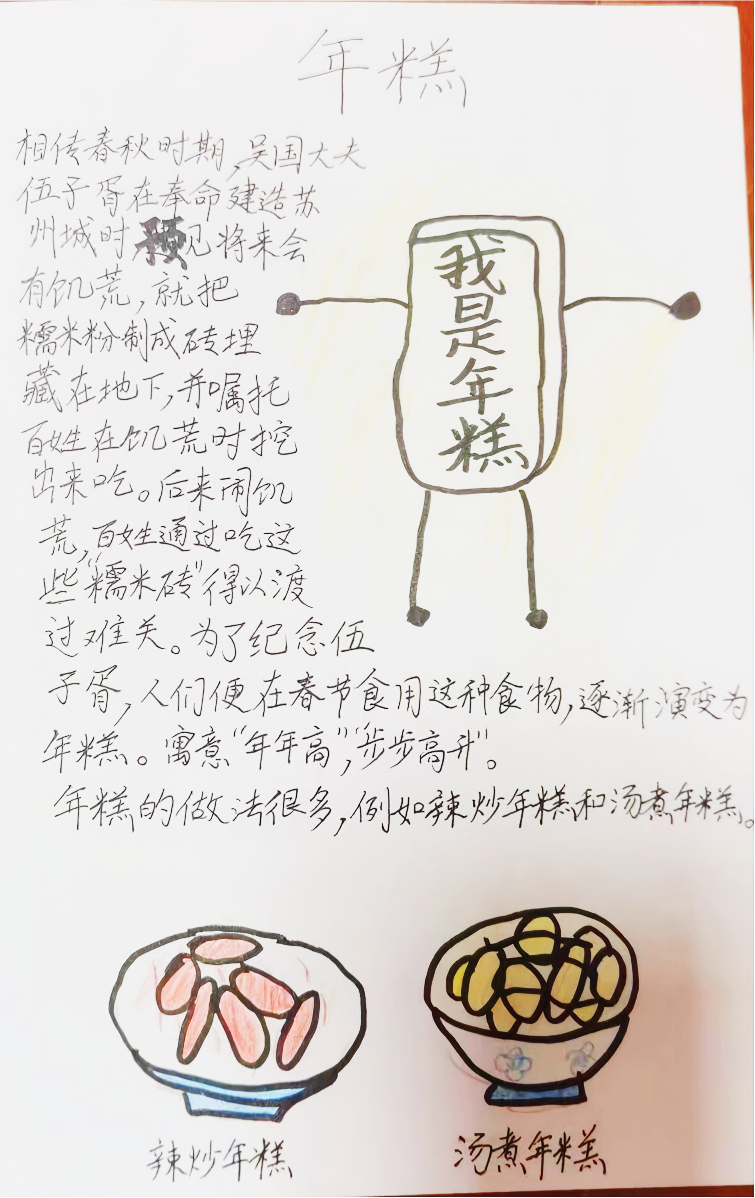 年糕
相传春秋时期,吴国大夫
伍子胥在奉命建造苏
州城时,预见将来会
有饥荒,就把
糯米粉制成砖埋
藏在地下,并嘱托
百姓在饥荒时挖
出来吃。后来闹饥
荒,百姓通过吃这
些“糯米砖”得以渡
过难关。为了纪念伍
子胥,人们便在春节食用这种食物,逐渐演变为
年糕。寓意“年年高”,“步步高升”。
年糕的做法很多,例如辣炒年糕和汤煮年糕。
我是年糕
辣炒年糕
汤煮年糕